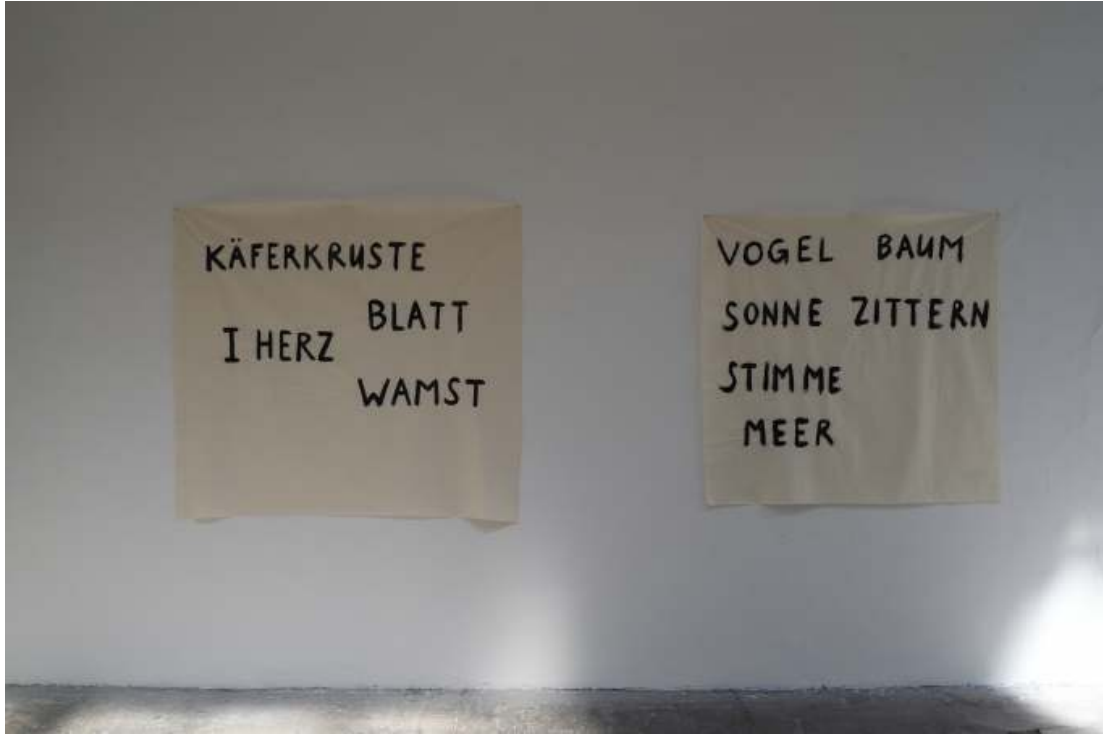 KÄFERKRUSTE
BLATT
I HERZ
WAMST
VOGEL BAUM
SONNE ZITTERN
STIMME
MEER